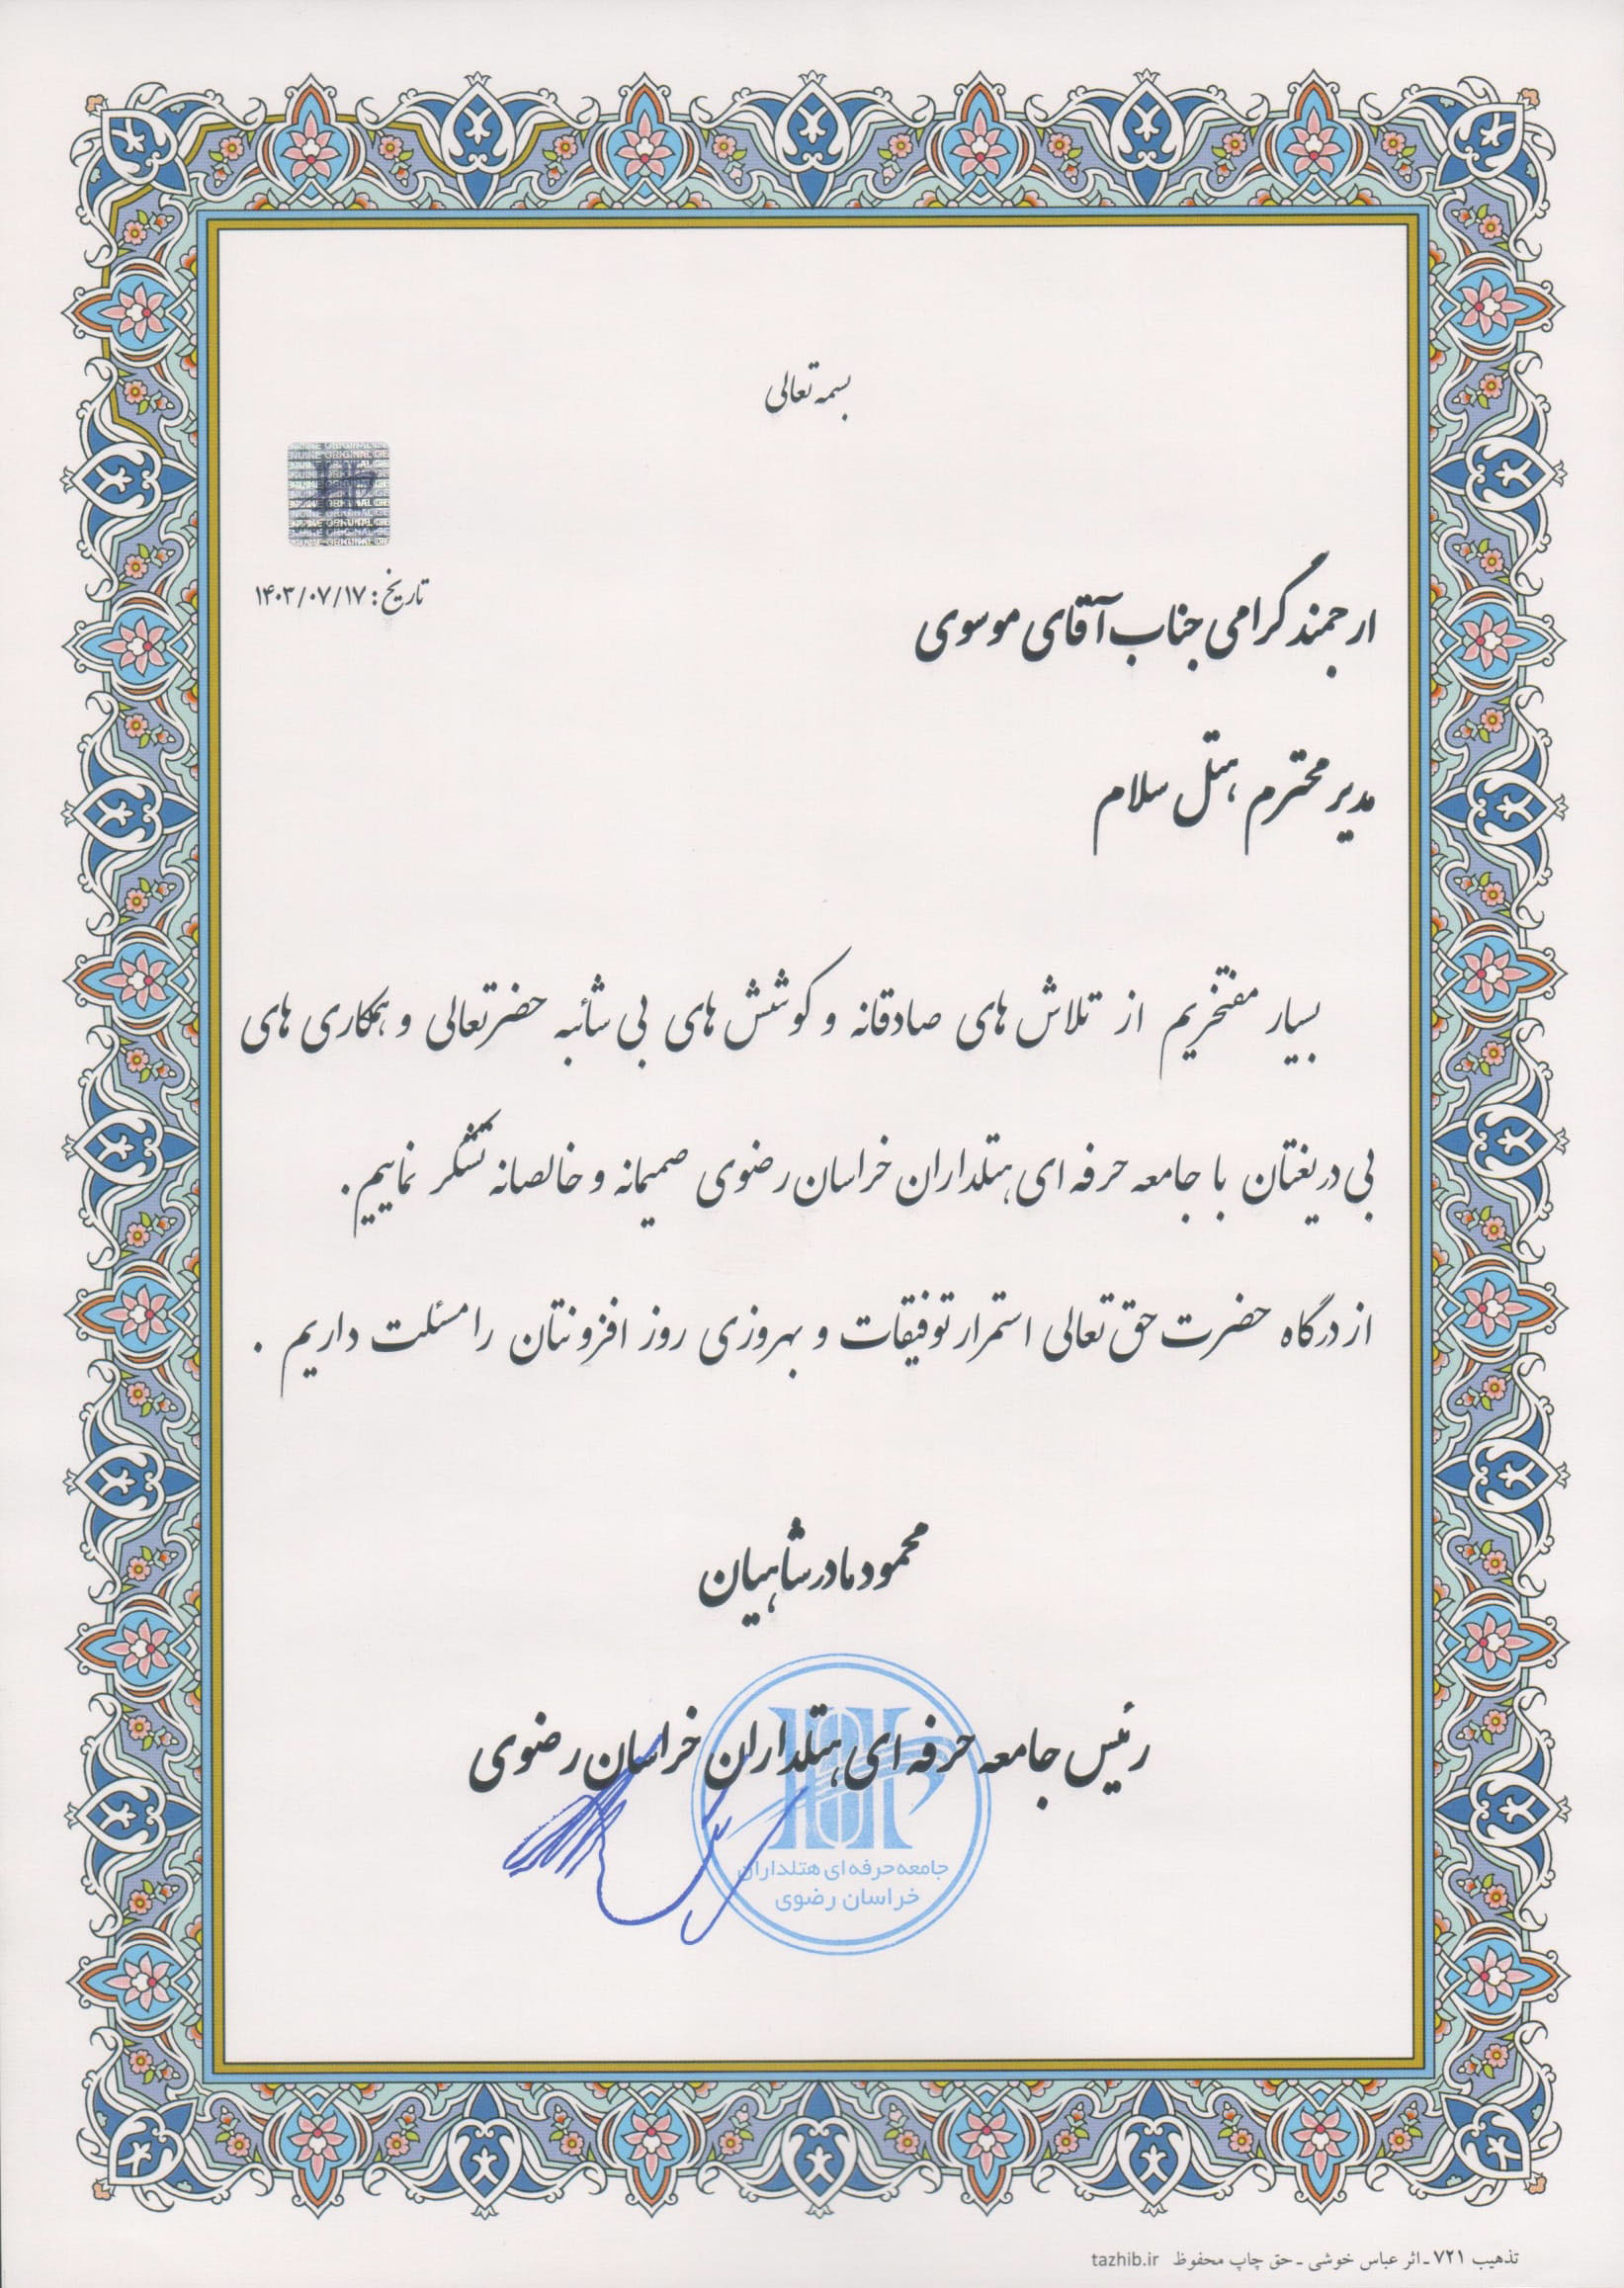 بسمه تعالی
تاریخ: ۱۴۰۳/۰۷/۱۷
ارجمند گرامی جناب آقای موسوی
مدیر محترم هتل سلام
بسیار مفتخریم از تلاش های صادقانه و کوشش های بی شائبه حضرتعالی و همکاری های
بی دریغتان با جامعه حرفه ای هتلداران خراسان رضوی صمیمانه و خالصانه تشکر نماییم.
از درگاه حضرت حق تعالی استمرار توفیقات و بهروزی روز افزونتان را مسئلت داریم .
محمود مادرشاهیان
رئیس جامعه حرفه ای هتلداران خراسان رضوی
جامعه حرفه ای هتلداران
خراسان رضوی
تذهیب ۷۲۱ ـ اثر عباس خوشی ـ حق چاپ محفوظ tazhib.ir